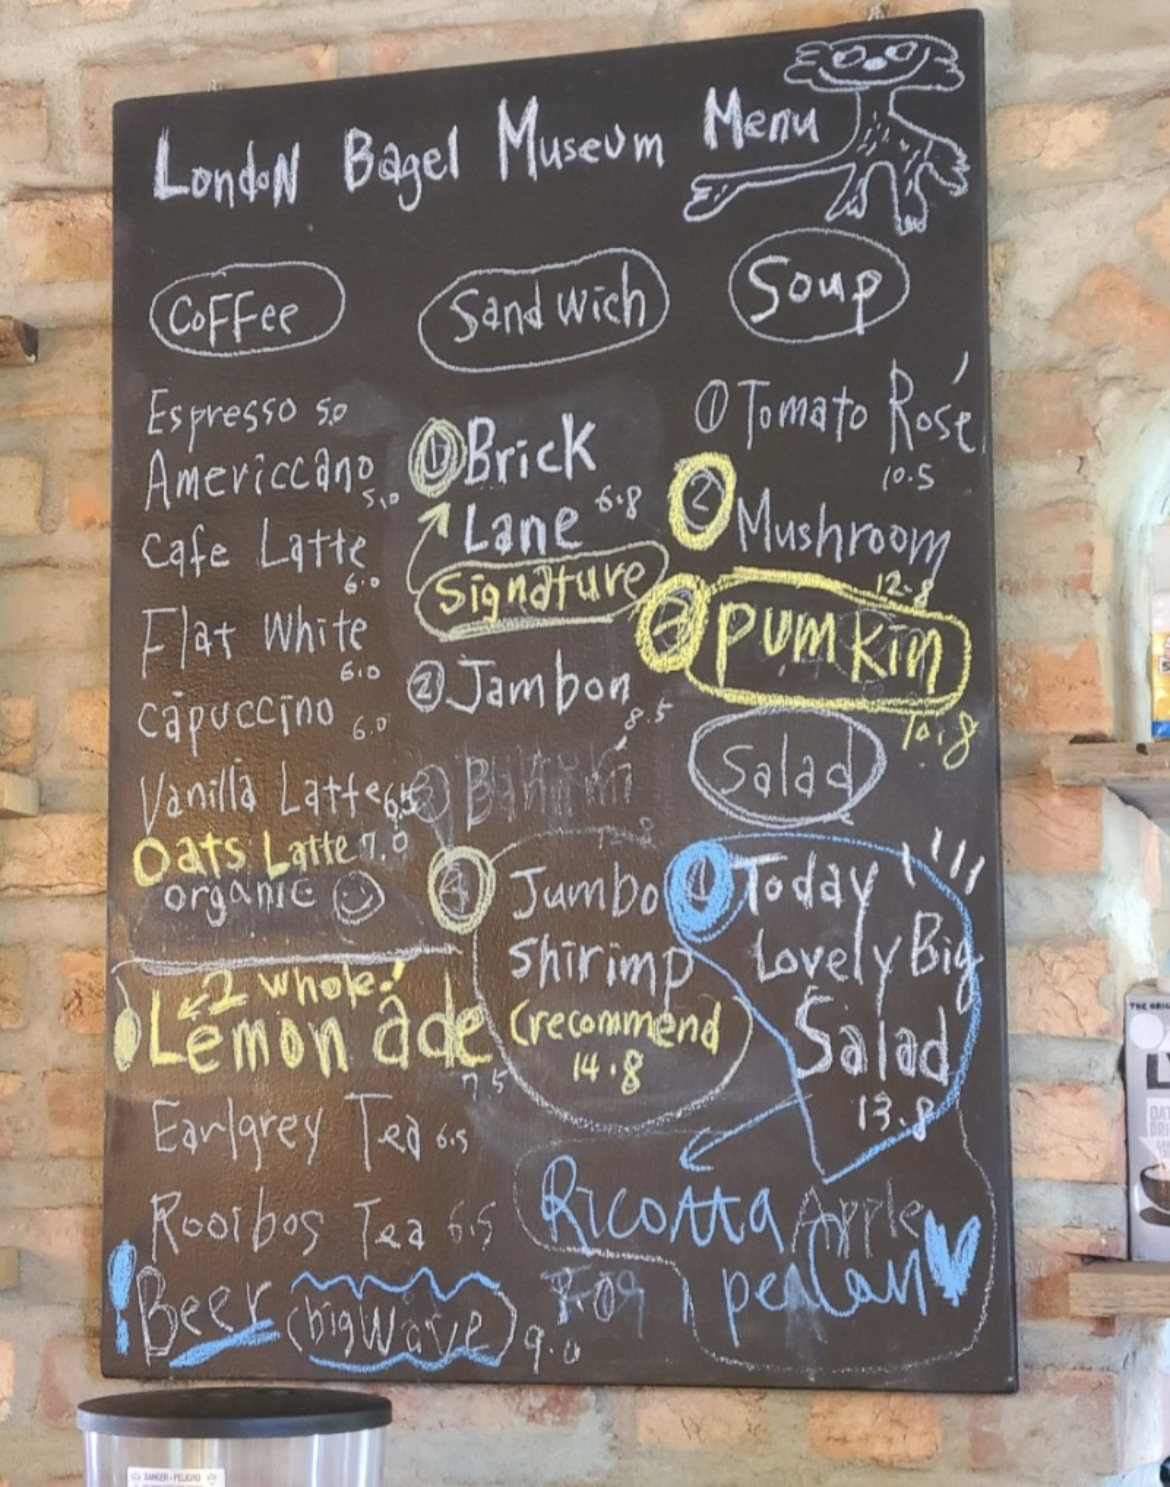 London Bagel Museum Menu
Coffee
Espresso 5.0
Americcano 5.0
Cafe Latte 6.0
Flat White 6.0
capuccino 6.0
Vanilla Latte 6.5
Oats Latte 7.0
organic
2 whole!
Lemon ade 7.5
Earlgrey Tea 6.5
Rooibos Tea 6.5
Beer (big wave) 9.0
Sandwich
① Brick
Lane 6.8
Signature
② Jambon 8.5
④ Jumbo
shirimp
(recommend
14.8
Soup
① Tomato Rosé
10.5
② Mushroom
12.8
② pumkin
10.8
Salad
① Today
Lovely Big
Salad
13.8
Ricotta Apple
THE ORIG
DANGER - PELIGRO